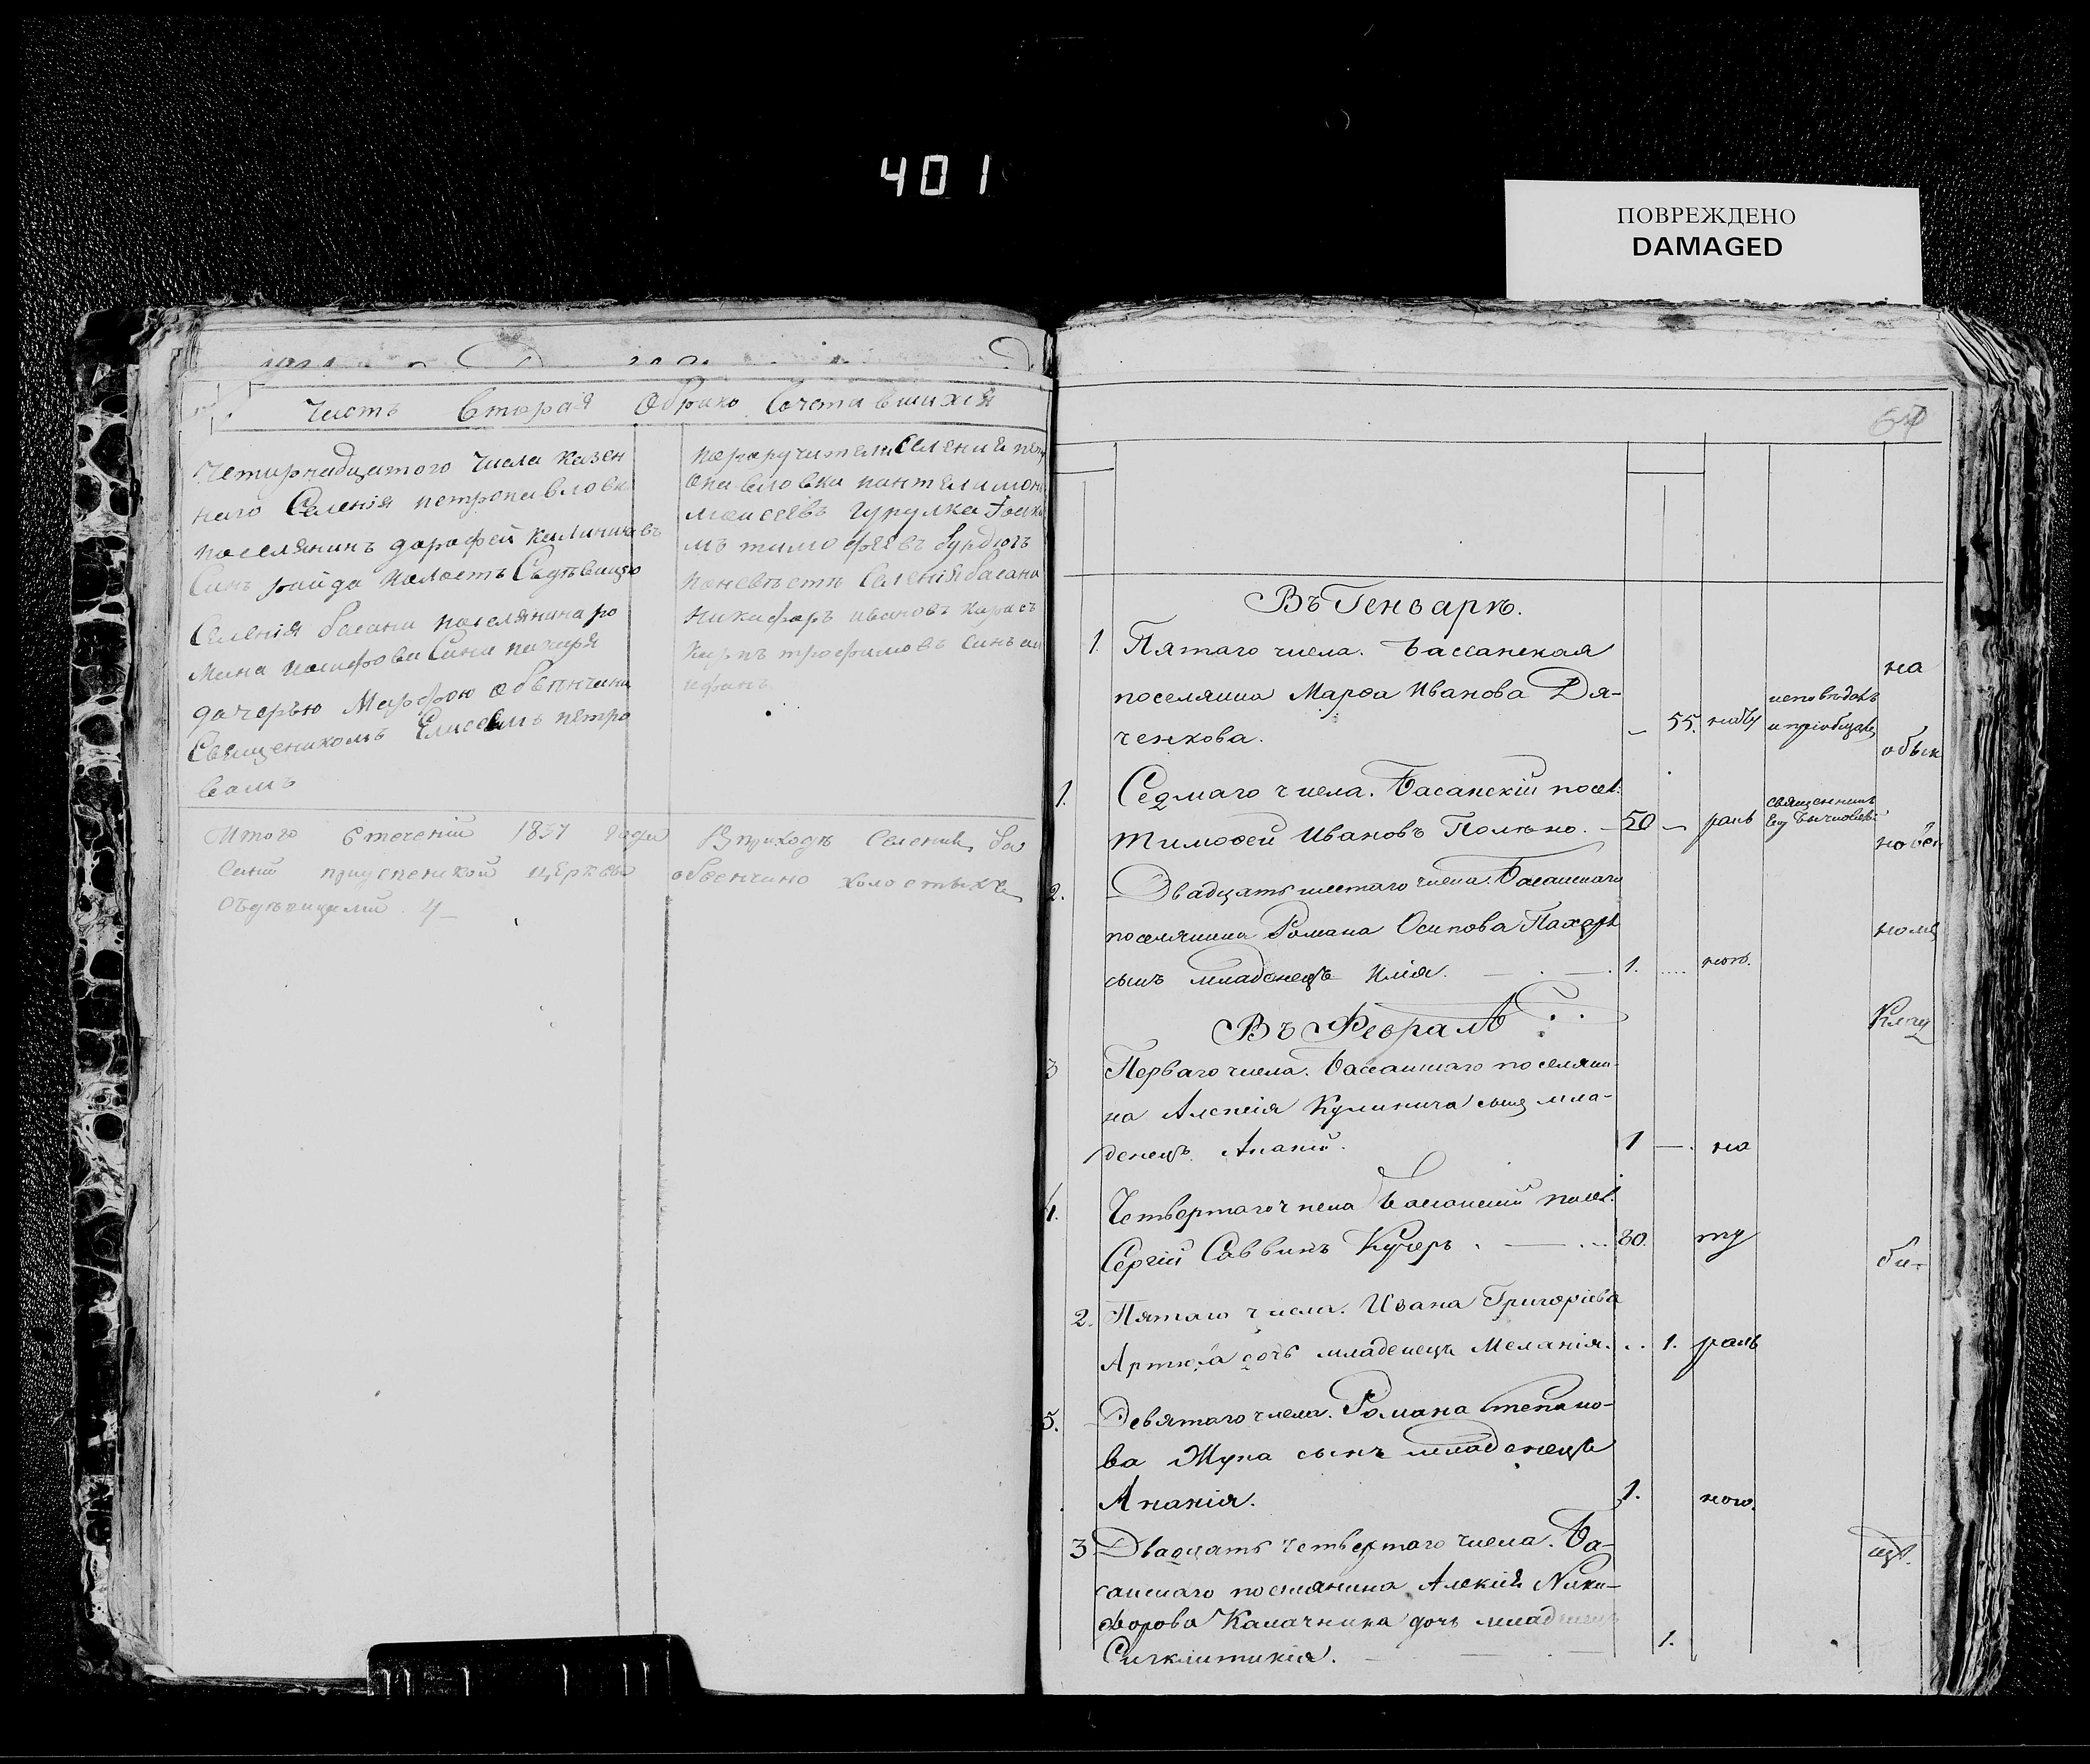 401
ПОВРЕЖДЕНО
DAMAGED
Часть Вторая Обрако Сочетавшихся
Четирнадцатого Числа казен
наго Селенія петропавловки
поселянинъ дорофей калиниковъ
Синъ райда холостъ Съдѣвицею
Селенія басани поселянина ро
мана иосифова Сина пахаря
дочерью Марфою обвѣнчани
Священикомъ Елисеемъ петро
вимъ
попоручители Селения петр
опавловки пантелимонъ
моисеевъ гурулка
мъ тимофеевъ бурдюгъ
поневѣсти Селенія басани
никифоръ ивановъ карасъ
карпъ трофимовъ синъ
Итого втечений 1837 года В приходѣ Селения ба
Сани приуспенской церкви обвенчано холостыхъ
Съдѣвицами 4
64
Въ Генварѣ.
1. Пятаго числа. Бассанская
поселянка Марѳа Иванова Дя-
ченкова. – 55. исповѣданъ
и пріобщанъ
на
обык
1. Седмаго числа. Басанскій посел.
Тимоѳей Ивановъ Полѣно. – 50 –
священникъ
2. Двадцать шестаго числа. Басанскаго
поселянина Романа Осипова Пахаря
сынъ младенецъ Илія. 1.
Въ Февралѣ
3 Перваго числа. Басанскаго поселяни-
на Алексія Кулинича сынъ мла-
денецъ Ананій. 1 — на
4. Четвертаго числа Басанскій посел.
Сергій Саввинъ Кучеръ. 80.
2. Пятаго числа. Ивана Григоріева
Артюха дочь младенецъ Меланія. .. 1.
5. Девятаго числа. Романа Степано-
ва Жука сынъ младенецъ
Ананія. 1.
3 Двадцать четвертаго числа. Ба-
санскаго поселянина Алексія Ники-
форова Калачника дочь младенецъ
Сигклитикія. 1.